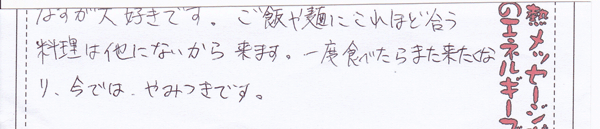 なすが大好きです。ご飯や麺にこれほど合う
料理は他にないから来ます。一度食べたらまた来たくな
り、今では、やみつきです。
熱メッセージ
のエネルギー